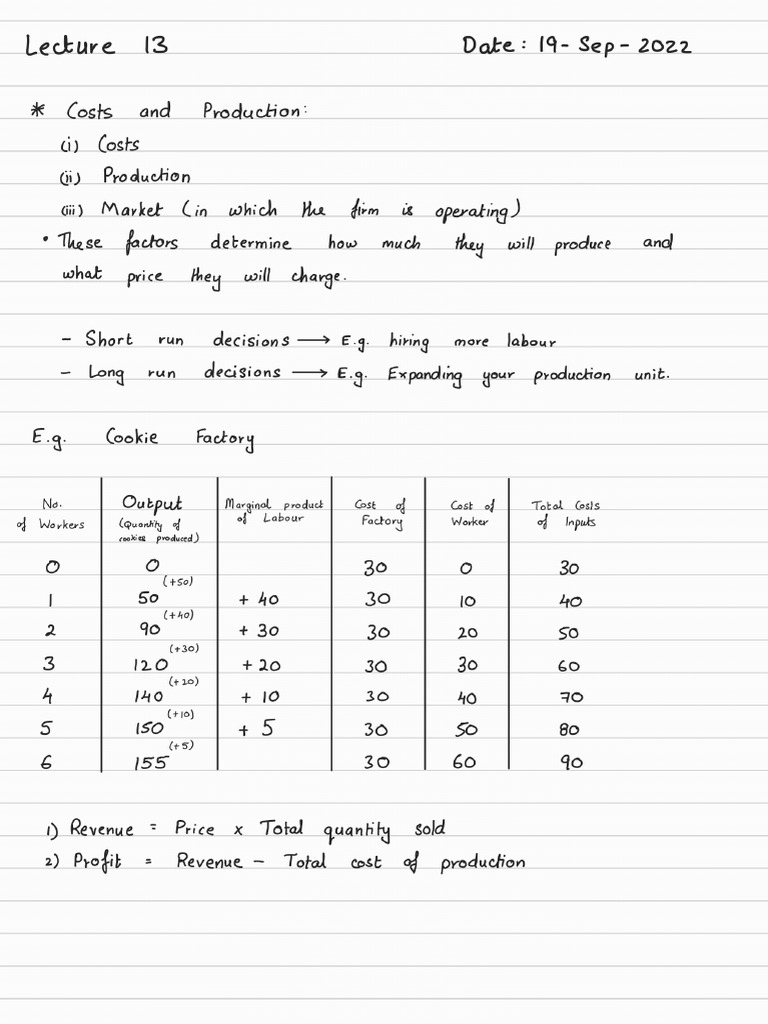 Lecture 13 Date: 19-Sep-2022
* Costs and Production:
(i) Costs
(ii) Production
(iii) Market (in which the firm is operating)
• These factors determine how much they will produce and
what price they will charge.
- Short run decisions ⟶ E.g. hiring more labour
- Long run decisions ⟶ E.g. Expanding your production unit.
E.g. Cookie Factory
No. Output Marginal product Cost of Cost of Total Costs
of Workers (Quantity of of Labour Factory Worker of Inputs
cookies produced)
0 0 30 0 30
(+50)
1 50 + 40 30 10 40
(+40)
2 90 + 30 30 20 50
(+30)
3 120 + 20 30 30 60
(+20)
4 140 + 10 30 40 70
(+10)
5 150 + 5 30 50 80
(+5)
6 155 30 60 90
1) Revenue = Price x Total quantity sold
2) Profit = Revenue - Total cost of production